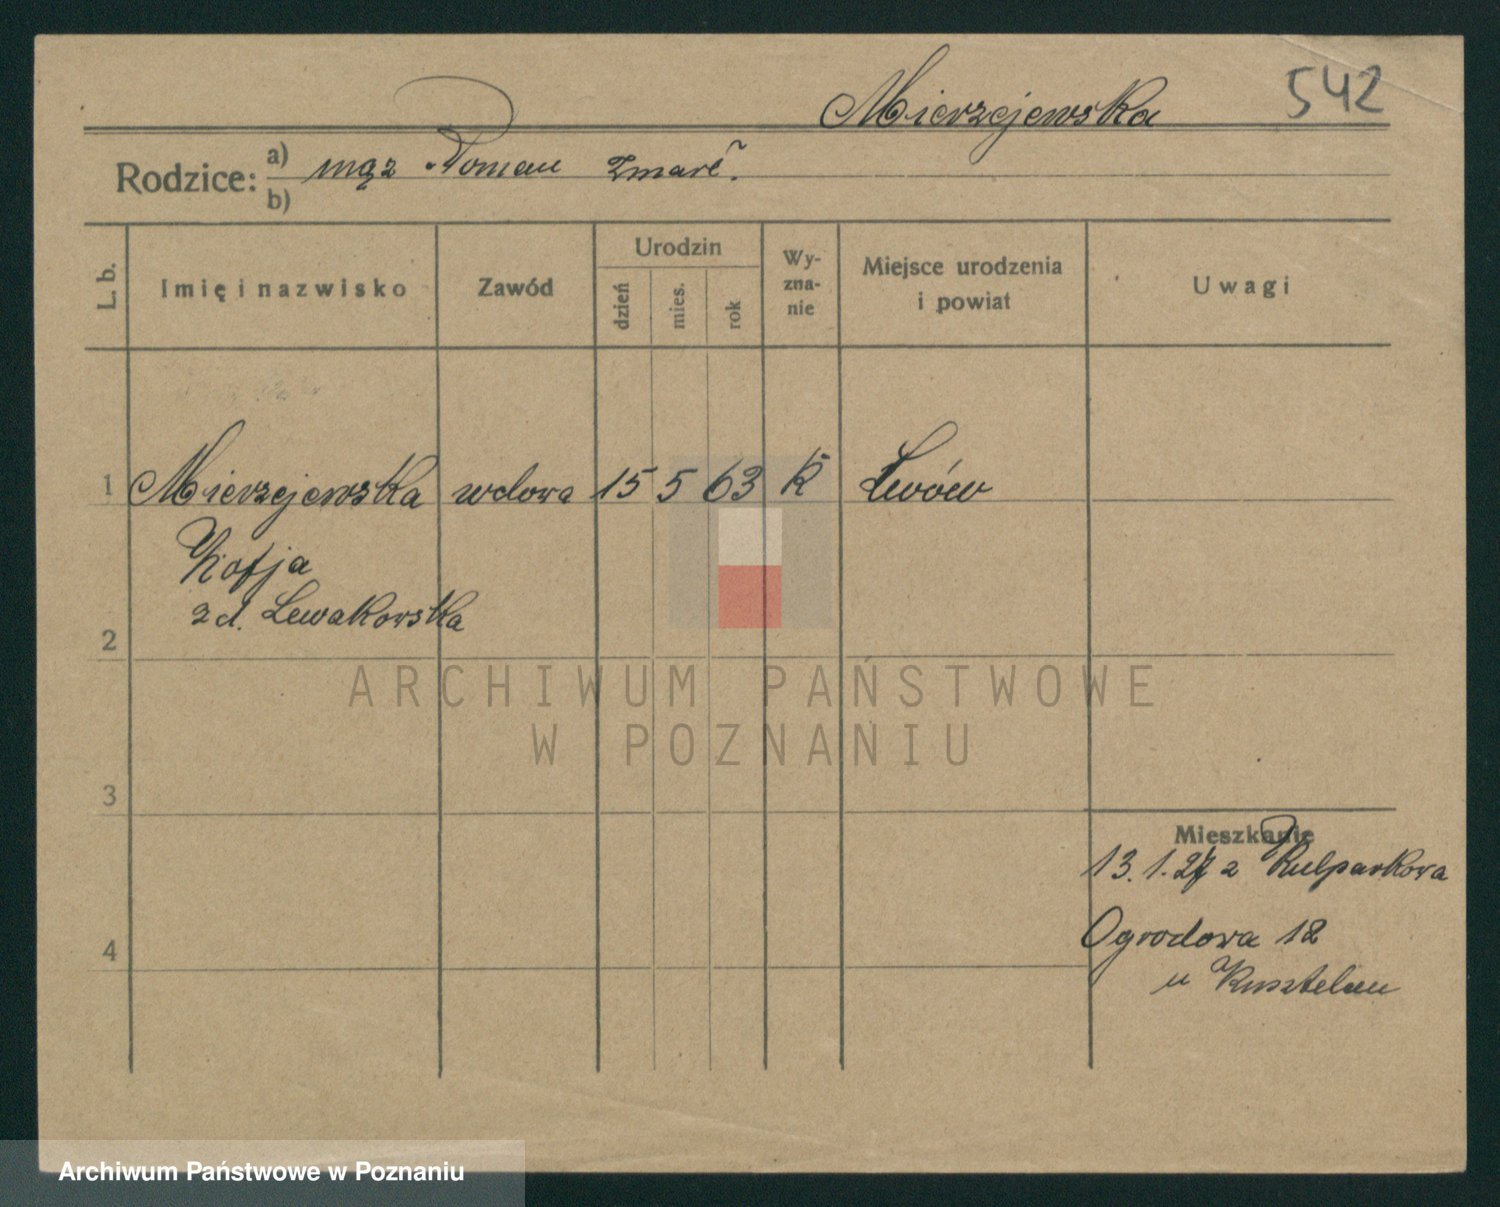 542
Mierzejewska
Rodzice: a) mąż Roman zmarł.
b)
L. b. Imię i nazwisko Zawód Urodzin dzień mies. rok Wy-zna-nie Miejsce urodzenia i powiat Uwagi
1 Mierzejewska wdowa 15 5 63 k Lwów
Zofja
2 z d. Lewakowska
ARCHIWUM PAŃSTWOWE
W POZNANIU
3
Mieszkanie
13. 1. 27 z Kulparkowa
4 Ogrodowa 12
u Kusztelan
Archiwum Państwowe w Poznaniu